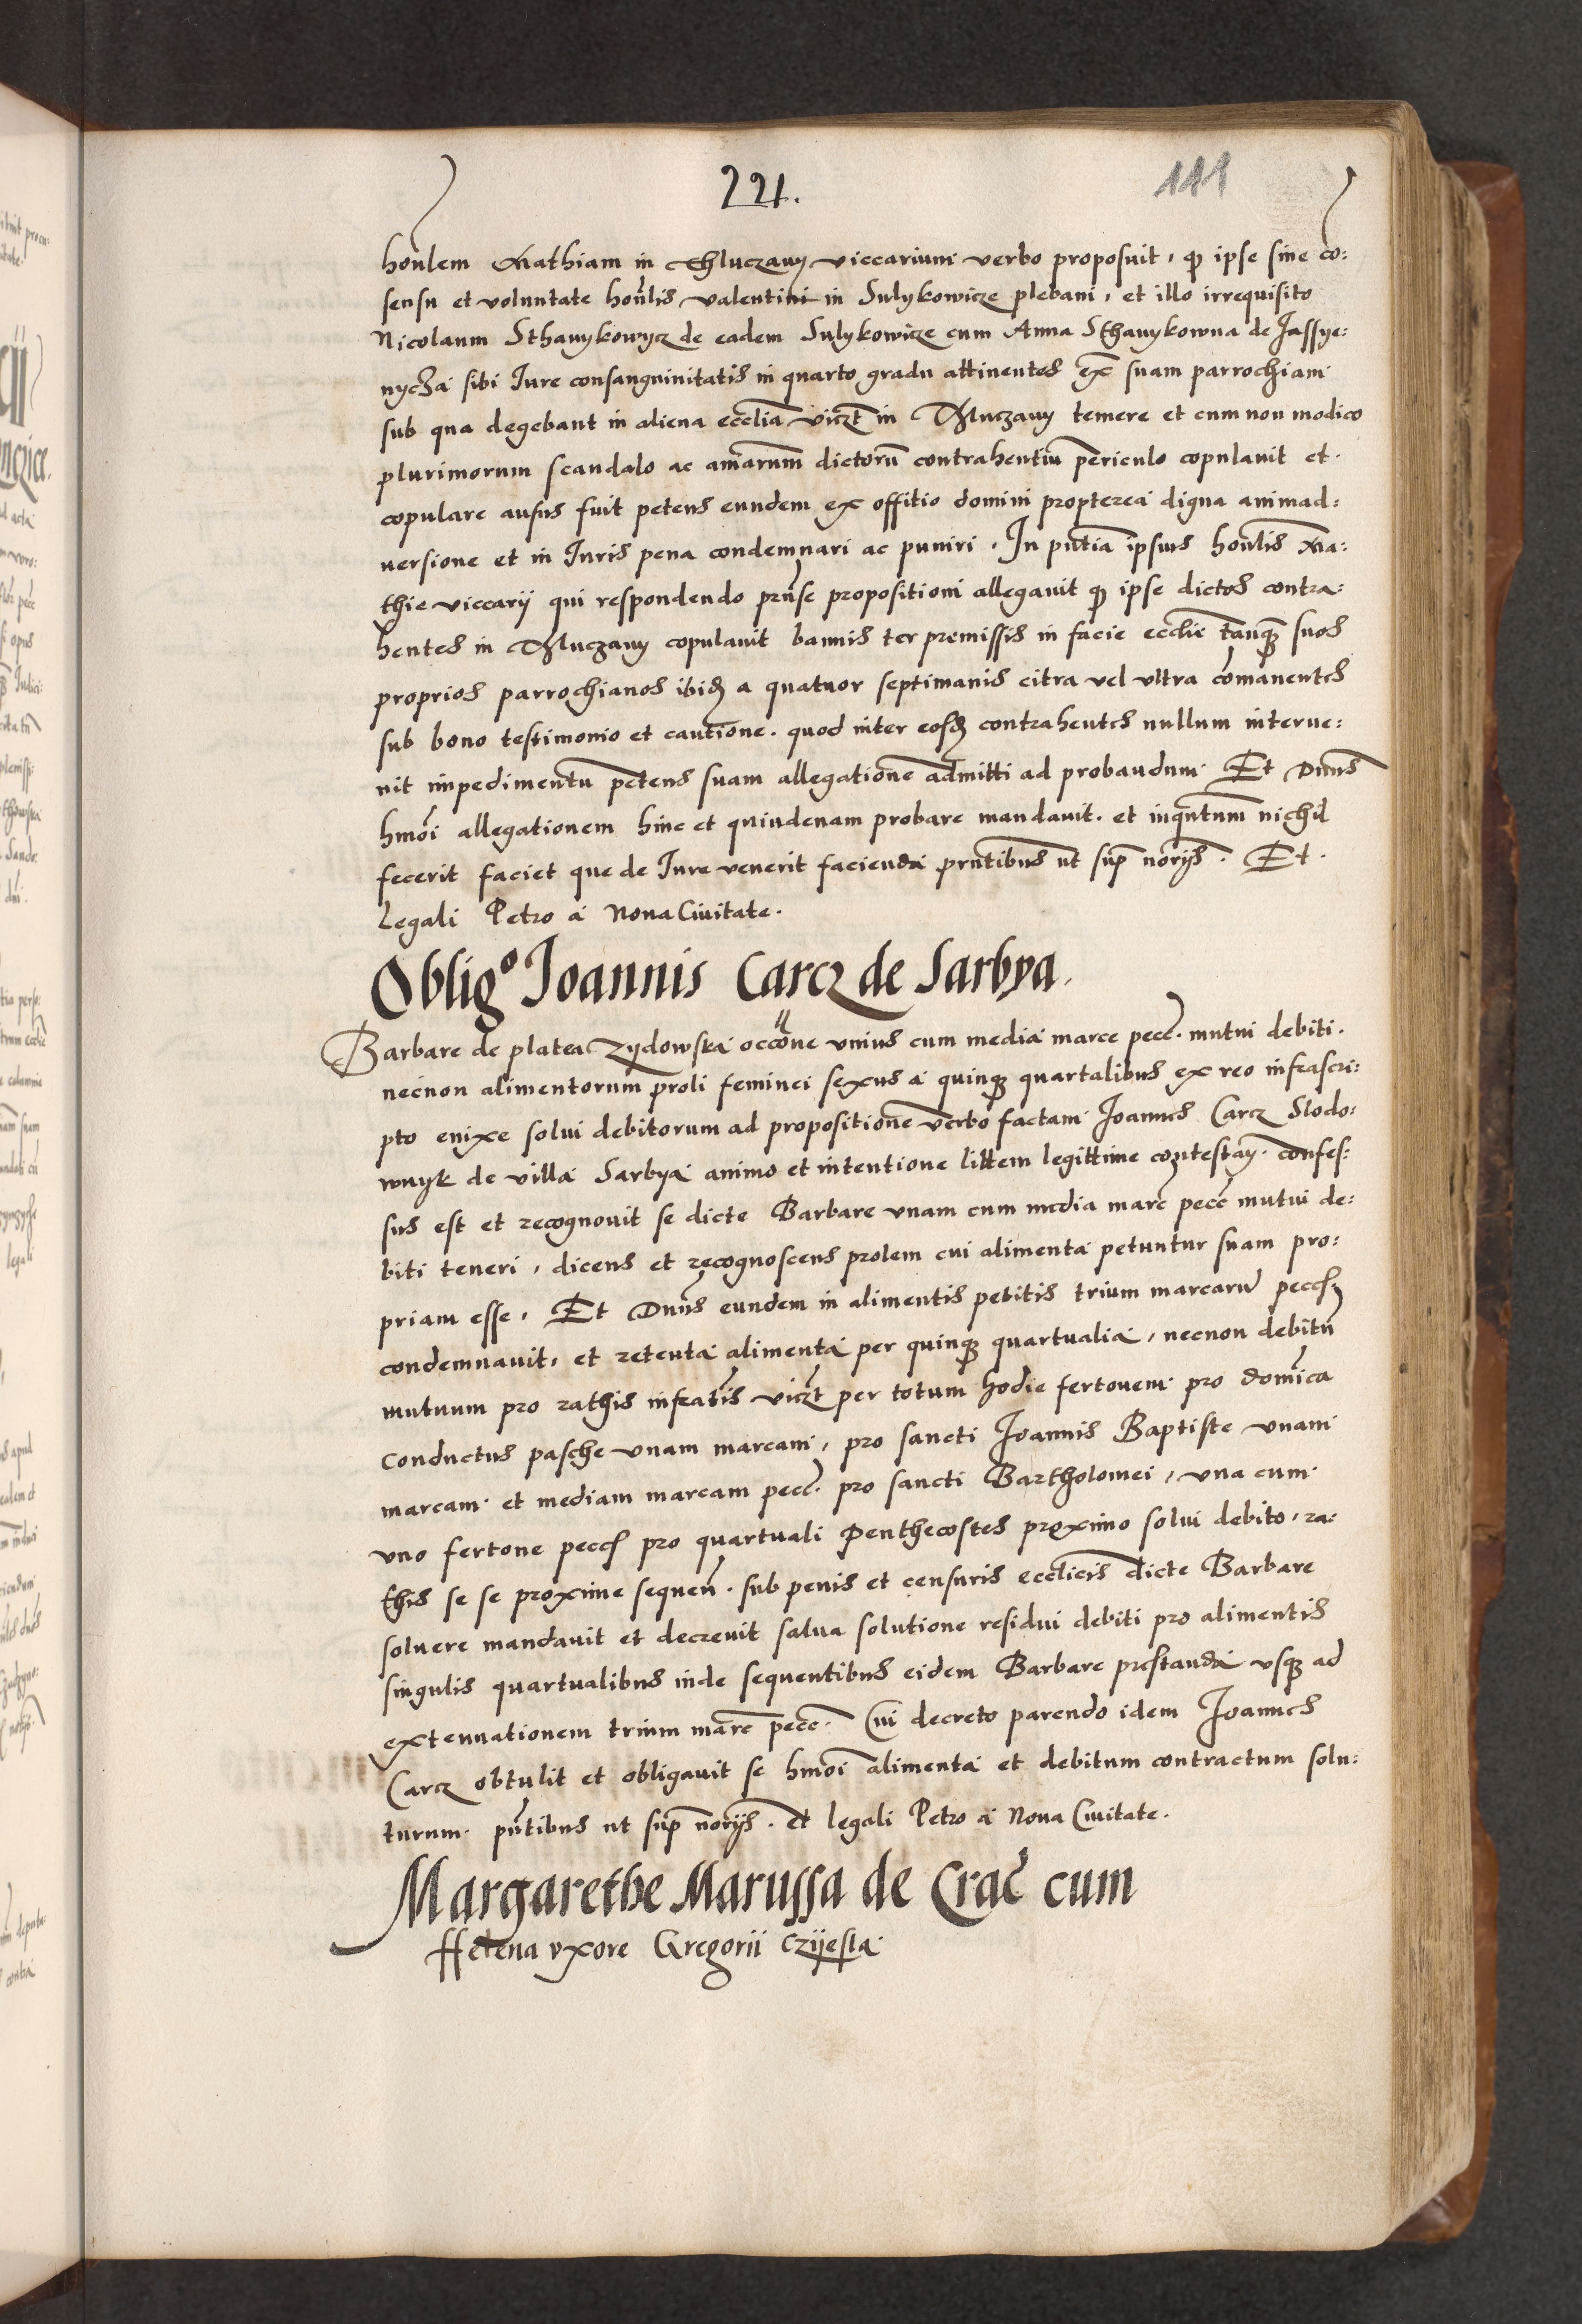 221.
111
honlem Mathiam in Thluczany viccarium verbo proposuit, qp ipse sine co:
sensu et voluntate honlis valentini in Sulykowicze plebani, et illo irrequisito
Nicolaum Sthanykowycz de eadem Sulykowicze cum Anna Sthanykowna de Jassye:
nycza sibi Jure consanguinitatis in quarto gradu attinentes ex suam parrochiam
sub qua degebant in aliena ecclia viczt in Thluczany temere et cum non modico
plurimorum scandalo ac amarum dictoru contrahentiu periculo copulavit et
copulare ausus fuit petens eundem ex offitio domini propterea digna animad:
versione et in Juris pena condemnari ac puniri. In pntia ipsius honlis Ma:
thie viccarij qui respondendo prnse propositioni allegavit qp ipse dictos contra:
hentes in Thluczany copulavit bannis ter premissis in facie ecclie tanqz suos
proprios parrochianos ibidz a quatuor septimanis citra vel ultra comanentes
sub bono testimonio et cautione. quod inter eosdz contrahentes nullum interve:
nit impedimentu petens suam allegatione admitti ad probandum. Et Dnus
hmoi allegationem hinc et quindenam probare mandavit. et inqntum nichil
fecerit faciet que de Jure venerit facienda prntibus ut sup norijs. Et
Legali Petro a Nova Civitate.
Oblig° Joannis Carcz de Sarbya.
Barbare de platea Zydowska occone unius cum media marce pecc. mutui debiti.
necnon alimentorum proli feminei sexus a quinqz quartalibus ex reo infrascri:
pto enixe solui debitorum ad propositione verbo factam Joannes Carcz Slodo:
wnyk de villa Sarbya animo et intentione littem legittime contestan. confes:
sus est et recognovit se dicte Barbare unam cum media marc pecc mutui de:
biti teneri, dicens et recognoscens prolem cui alimenta petuntur suam pro:
priam esse. Et Dnus eundem in alimentis petitis trium marcaru pecc
condemnavit, et retenta alimenta per quinqz quartualia, necnon debitu
mutuum pro rathis infratis viczt per totum hodie fertonem pro domica
conductus pasche unam marcam, pro sancti Joannis Baptiste unam
marcam et mediam marcam pecc. pro sancti Bartholomei, una cum
uno fertone pecc pro quartuali Penthecostes proximo solui debito, ra:
this se se proxime sequen. sub penis et censuris ecclicis dicte Barbare
solvere mandavit et decrevit salva solutione residui debiti pro alimentis
singulis quartualibus inde sequentibus eidem Barbare prestanda usqz ad
extenuationem trium marc pecc. Cui decreto parendo idem Joannes
Carcz obtulit et obligavit se hmoi alimenta et debitum contractum solu:
turum. pntibus ut sup norijs. et legali Petro a Nova Civitate.
Margarethe Marussa de Crac cum
Helena vxore Gregorii Czijesla